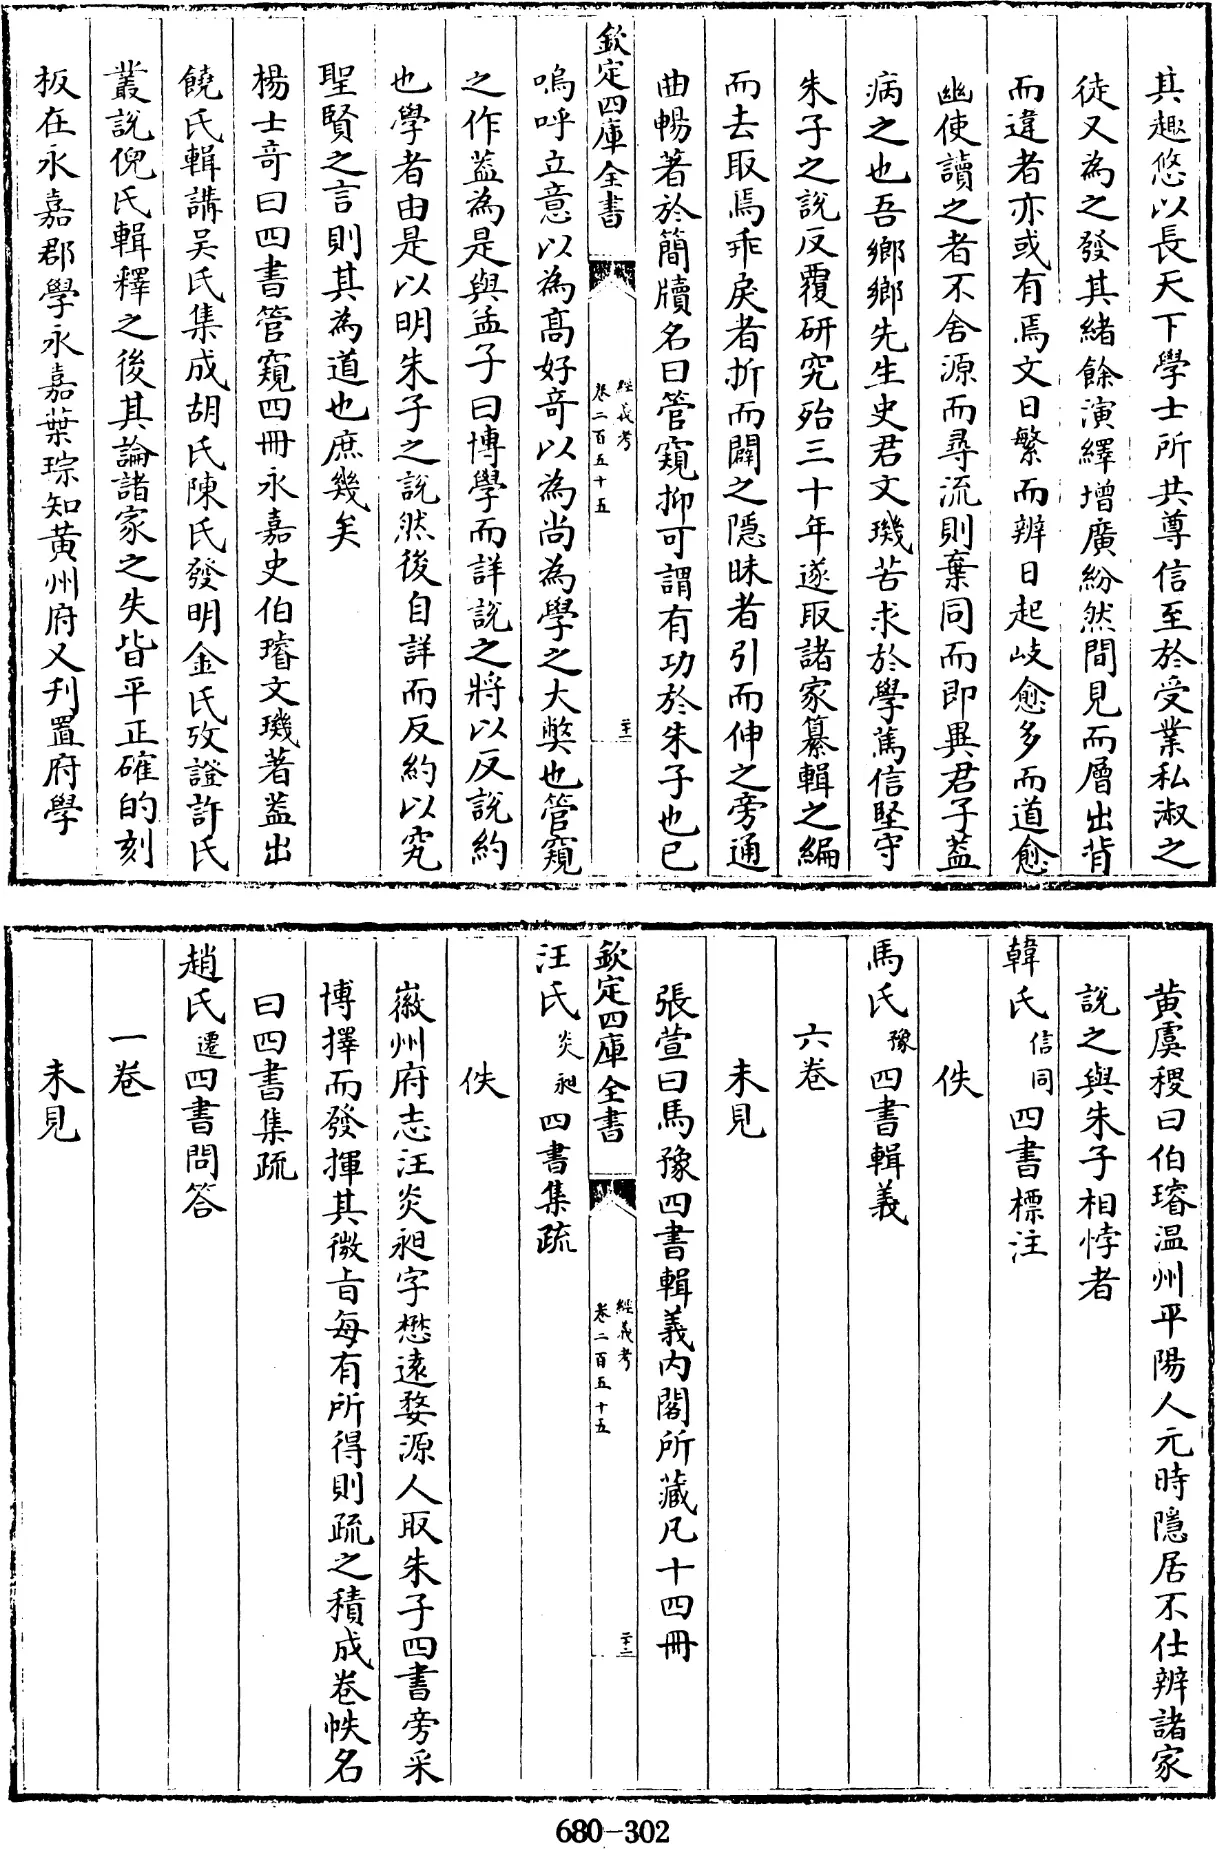 其趣悠以長天下學士所共尊信至於受業私淑之
徒又為之發其緒餘演繹増廣紛然間見而層出背
而違者亦或有焉文日繁而辨日起岐愈多而道愈
幽使讀之者不舍源而尋流則棄同而即異君子葢
病之也吾鄉鄉先生史君文璣苦求於學篤信堅守
朱子之說反覆研究殆三十年遂取諸家纂輯之編
而去取焉乖戾者折而闢之隱昧者引而伸之旁通
曲暢著於簡牘名曰管窺抑可謂有功於朱子也已
欽定四庫全書
經義考
卷二百五十五
二十一
嗚呼立意以為髙好竒以為尚為學之大獘也管窺
之作葢為是與孟子曰博學而詳說之將以反說約
也學者由是以明朱子之說然後自詳而反約以究
聖賢之言則其為道也庶幾矣
楊士竒曰四書管窺四冊永嘉史伯璿文璣著葢出
饒氏輯講吴氏集成胡氏陳氏發明金氏攷證許氏
叢說倪氏輯釋之後其論諸家之失皆平正確的刻
板在永嘉郡學永嘉葉琮知黄州府又刋置府學
黄虞稷曰伯璿温州平陽人元時隱居不仕辨諸家
說之與朱子相悖者
韓氏信同四書標注
佚
馬氏豫四書輯義
六卷
未見
張萱曰馬豫四書輯義内閣所藏凡十四冊
欽定四庫全書
經義考
卷二百五十五
二十二
汪氏炎昶四書集疏
佚
徽州府志汪炎昶字懋遠婺源人取朱子四書旁采
博擇而發揮其微旨每有所得則疏之積成卷帙名
曰四書集疏
趙氏遷四書問答
一卷
未見
680-302